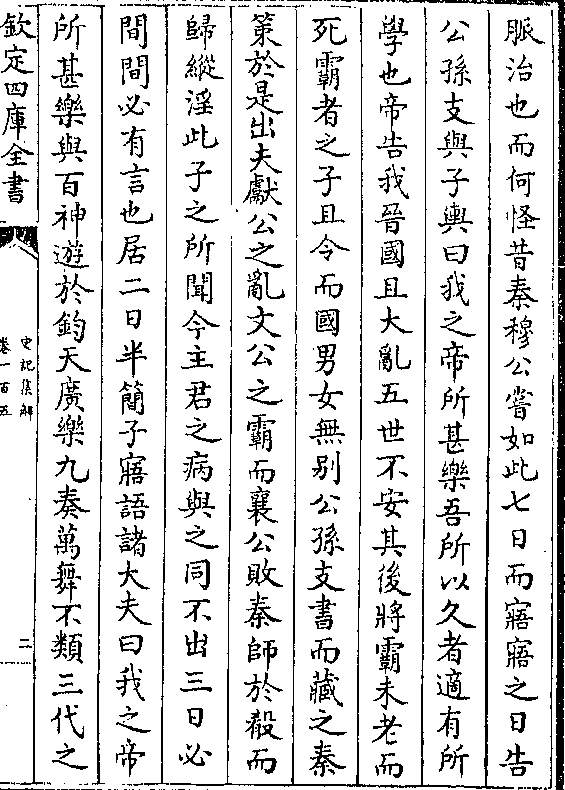 脈治也而何怪昔秦穆公嘗如此七日而寤寤之日告
公孫支與子輿曰我之帝所甚樂吾所以久者適有所
學也帝告我晉國且大亂五世不安其後將霸未老而
死霸者之子且令而國男女無别公孫支書而藏之秦
策於是出夫獻公之亂文公之霸而襄公敗秦師於殽而
歸縱淫此子之所聞今主君之病與之同不出三日必
間間必有言也居二日半簡子寤語諸大夫曰我之帝
所甚樂與百神遊於鈞天廣樂九奏萬舞不類三代之
欽定四庫全書
史記集解
卷一百五
二